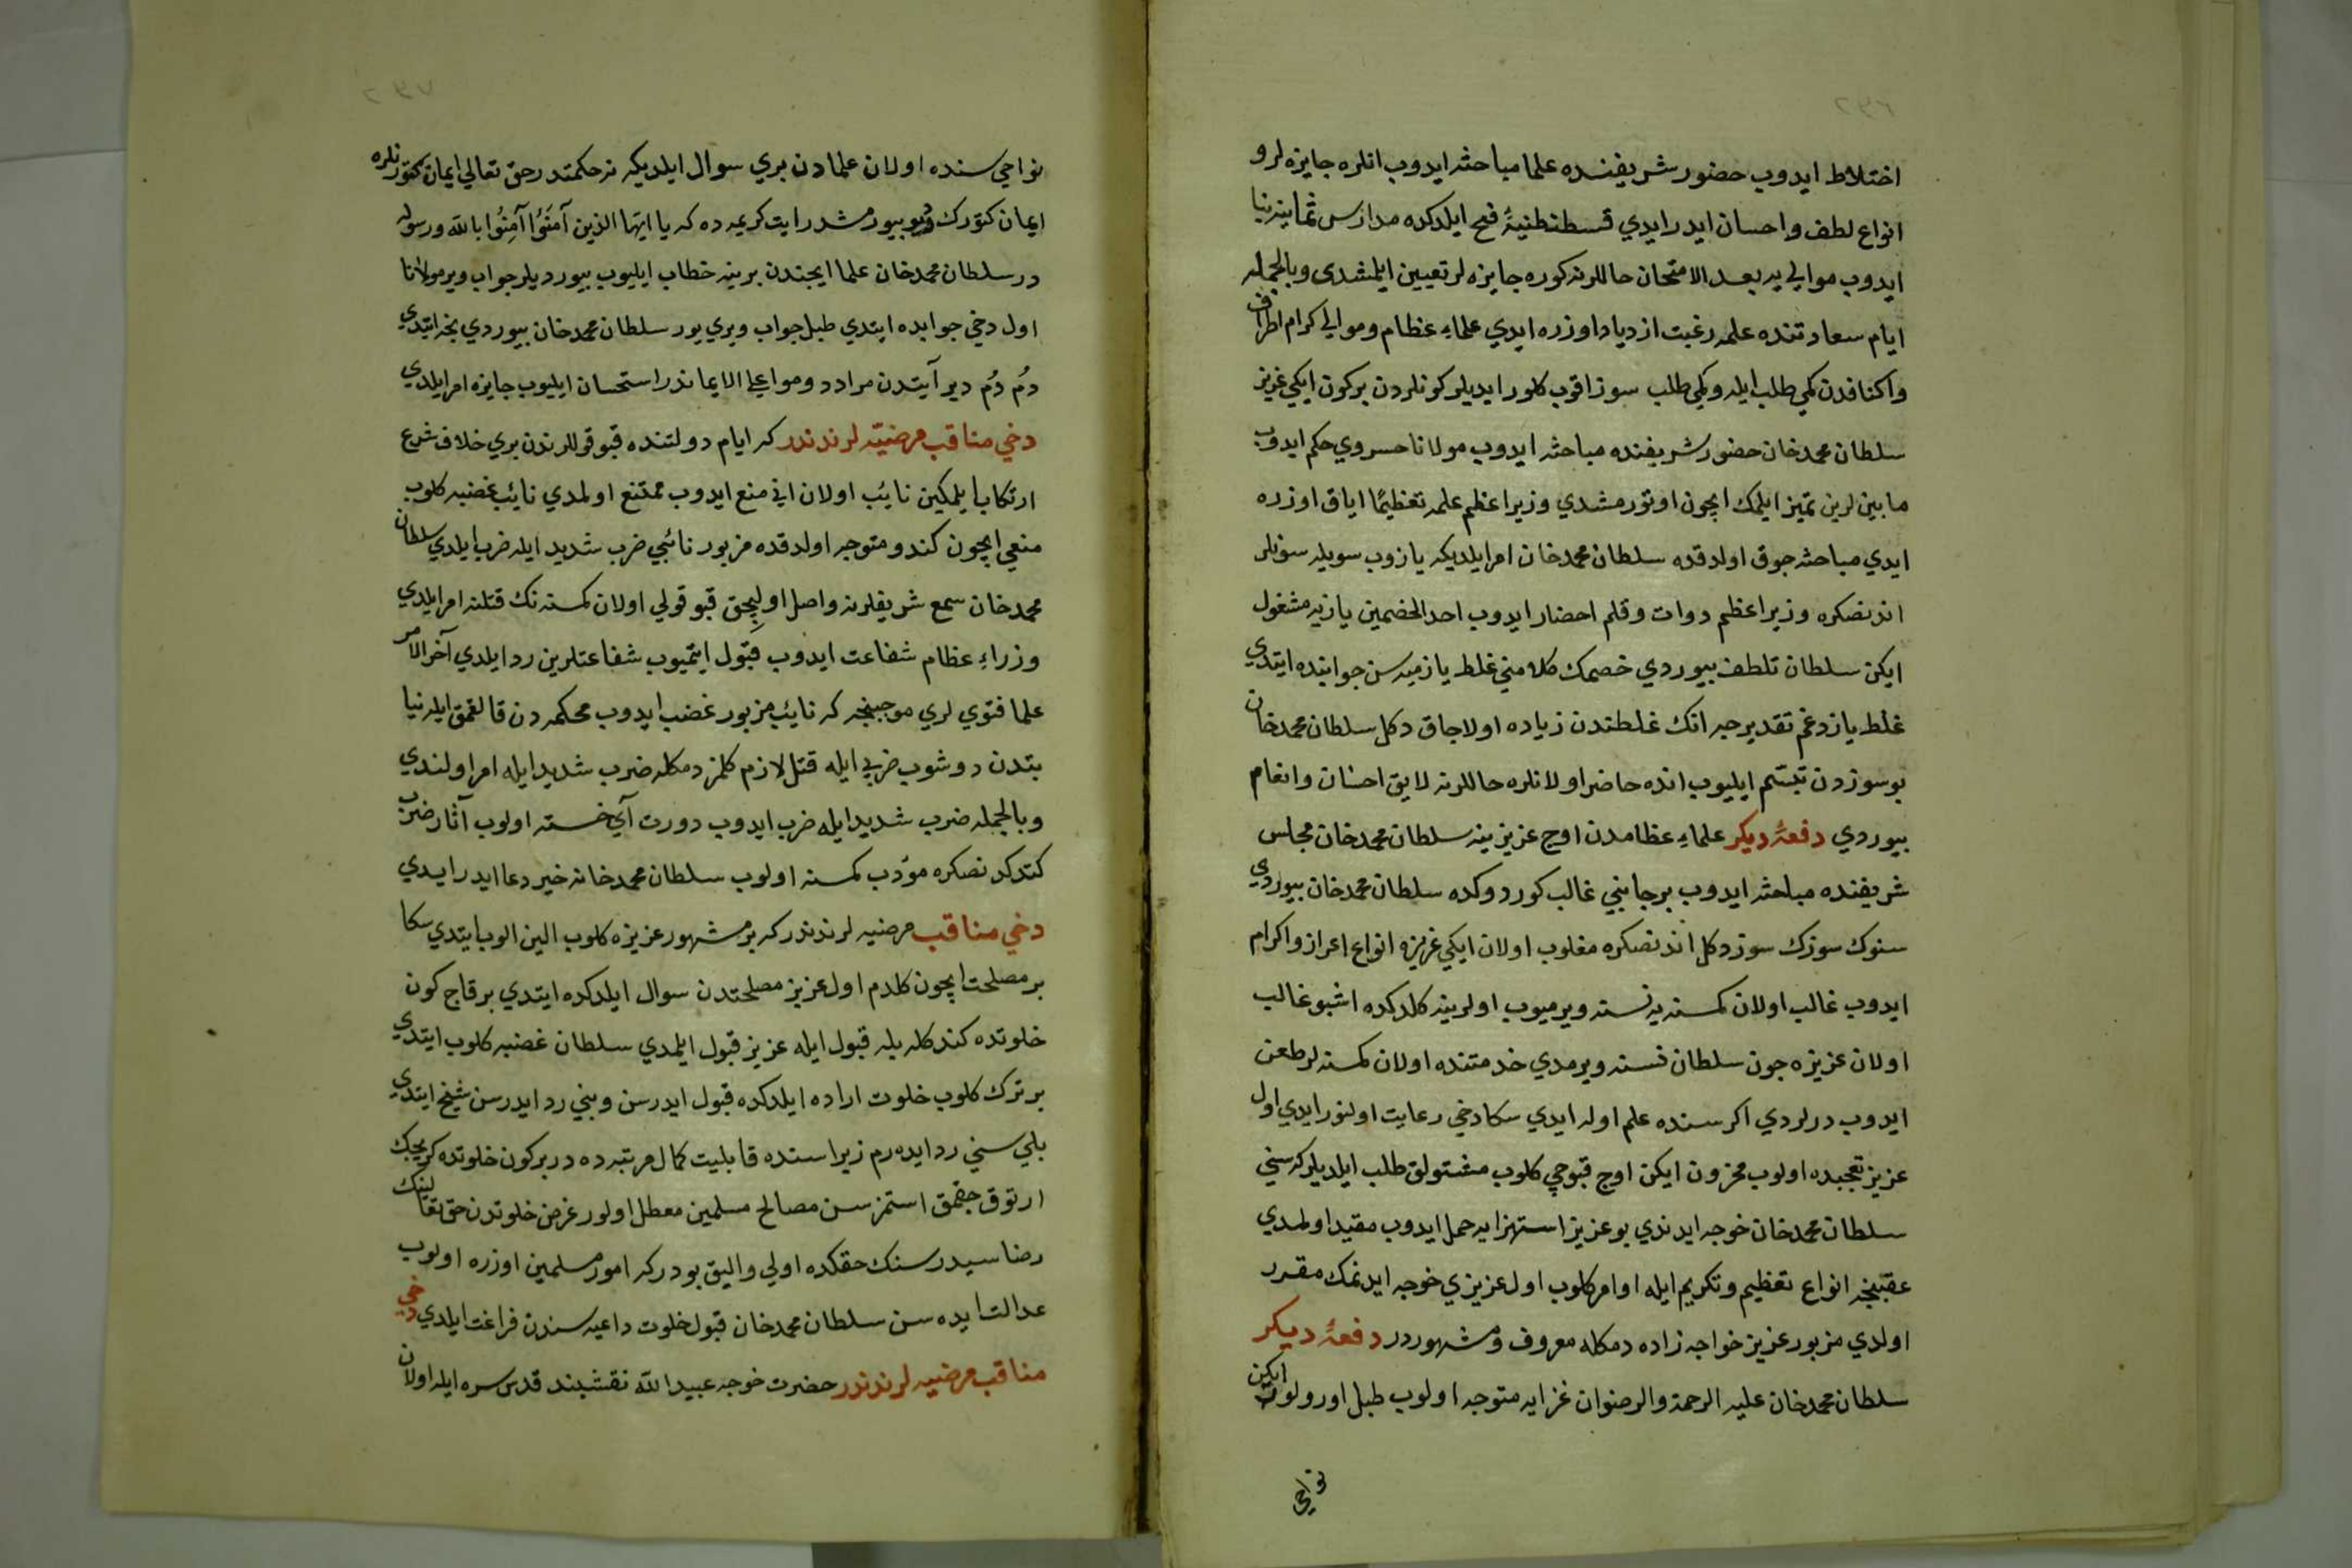 اختلاط ايدوب حضور شريفنده علما مباحثه ايدوب انلره جايزه لر و
انواع لطف و احسان ايدر ايدي قسطنطنيۀ فتح ايلدكده مدارس ثمانيه بنا
ايدوب موالي يه بعد الامتحان حاللرنه كوره جايزه لر تعيين ايلمشدى و بالجمله
ايام سعادتنده علمه رغبت ازدياد اوزره ايدي علماء عظام و موالي كرام اطراف
و اكنافدن كمي طلب ايله و كمي طلب سوز اقوب كلور ايديلر كونلردن بركون ايكي عزيز
سلطان محمد خان حضور شريفنده مباحثه ايدوب مولانا خسروي حكم ايدوب
ما بين لرين تميز ايلمك ايچون اوتورمشدي وزير اعظم علمه تعظيمًا اياق اوزره
ايدي مباحثه جوق اولدقده سلطان محمد خان امر ايلديكه يازوب سويله سونلر
اندنصكره وزير اعظم دوات و قلم احضار ايدوب احد الخصمين يازيه مشغول
ايكن سلطان تلطف بيوردي خصمك كلامني غلط يازميه سن جوابنده ايتدي
غلط يازدغم تقديرجه انك غلطندن زياده اولاجاق دكل سلطان محمد خان
بو سوزدن تبسّم ايليوب انده حاضر اولانلره حاللرنه لايق احسان و انعام
بيوردي دفعۀ ديكر علماء عظامدن اوج عزيز ينه سلطان محمد خان مجلس
شريفنده مباحثه ايدوب بر جانبي غالب كوردوكده سلطان محمد خان بيوردي
سنوك سوزك سوز دكل اندنصكره مغلوب اولان ايكي عزيزه انواع اعزاز و اكرام
ايدوب غالب اولان كمسنه يه نسنه ويرميوب اولرينه كلدكده اشبو غالب
اولان عزيزه جون سلطان نسنه ويرمدي خدمتنده اولان كمسنه لر طعن
ايدوب درلردي اكر سنده علم اوله ايدي سكا دخي رعايت اولنور ايدي اول
عزيز تعجبده اولوب محزون ايكن اوج قپوجي كلوب مشتولق طلب ايلديلر كه سني
سلطان محمد خان خوجه ايدندي بو عزيز استهزايه حمل ايدوب مقيد اولمدي
عقبنجه انواع تعظيم و تكريم ايله اوامر كلوب اول عزيزي خوجه ايدنمك مقرر
اولدي مزبور عزيز خواجه زاده دمكله معروف و مشهوردر دفعۀ ديكر
سلطان محمد خان عليه الرحمة والرضوان غزايه متوجه اولوب طبل اورولور ايكن
نواحي
نواحي سنده اولان علمادن بري سوال ايلديكه نه حكمتدر حق تعالي ايمان كتورنلره
ايمان كتورك ديو بيورمشدر ايت كريمه ده كه يا ايها الذين آمَنُوا آمِنُوا بالله ورسوله
در سلطان محمد خان علما ايجندن برينه خطاب ايليوب بيورديلر جواب وير مولانا
اول دخي جوابده ايتدي طبل جواب ويري يور سلطان محمد خان بيوردي نجه ايتدي
دُم دُم دير آيتدن مراد دوموا علي الايماندر استحسان ايليوب جايزه امر ايلدي
دخي مناقب مرضيّه لرندندر كه ايام دولتنده قپو قوللرندن بري خلاف شرع
ارتكاب ايلمكين نايب اولان اني منع ايدوب ممتنع اولمدي نائب غضبه كلوب
منعي ايچون كندو متوجه اولدقده مزبور نائبي ضرب شديد ايله ضرب ايلدي سلطان
محمد خان سمع شريفلرنه واصل اوليجق قپو قولي اولان كمسنه نك قتلنه امر ايلدي
وزراء عظام شفاعت ايدوب قبول ايتميوب شفاعتلرين رد ايلدي آخر الامر
علما فتوي لري موجبنجه كه نايب مزبور غضب ايدوب محكمه دن قالقمق ايله نيا
بتدن دوشوب ضربي ايله قتل لازم كلمز دمكله ضرب شديد ايله امر اولندي
و بالجمله ضرب شديد ايله ضرب ايدوب دورت آي خسته اولوب آثار ضرب
كتدكدنصكره مؤدب كمسنه اولوب سلطان محمد خانه خير دعا ايدر ايدي
دخي مناقب مرضيه لرندندر كه بر مشهور عزيزه كلوب الين الوب ايتدي سكا
بر مصلحت ايچون كلدم اول عزيز مصلحتدن سوال ايلدكده ايتدي برقاج كون
خلوتده كندكله بله قبول ايله عزيز قبول ايلمدي سلطان غضبه كلوب ايتدي
بر ترك كلوب خلوت اراده ايلدكده قبول ايدرسن و بني رد ايدرسن شيخ ايتدي
بلي سني رد ايده رم زيرا سنده قابليت كمال مرتبه ده در بر كون خلوتده كريجك
ارتوق جقمق استمزسن مصالح مسلمين معطل اولور غرض خلوتدن حق تعالينك
رضاسيدر سنك حقكده اولي و اليق بودر كه امور مسلمين اوزره اولوب
عدالت ايده سن سلطان محمد خان قبول خلوت داعيه سندن فراغت ايلدي دخي
مناقب مرضيه لرندندر حضرت خوجه عبيد الله نقشبند قدس سره ايله اولان